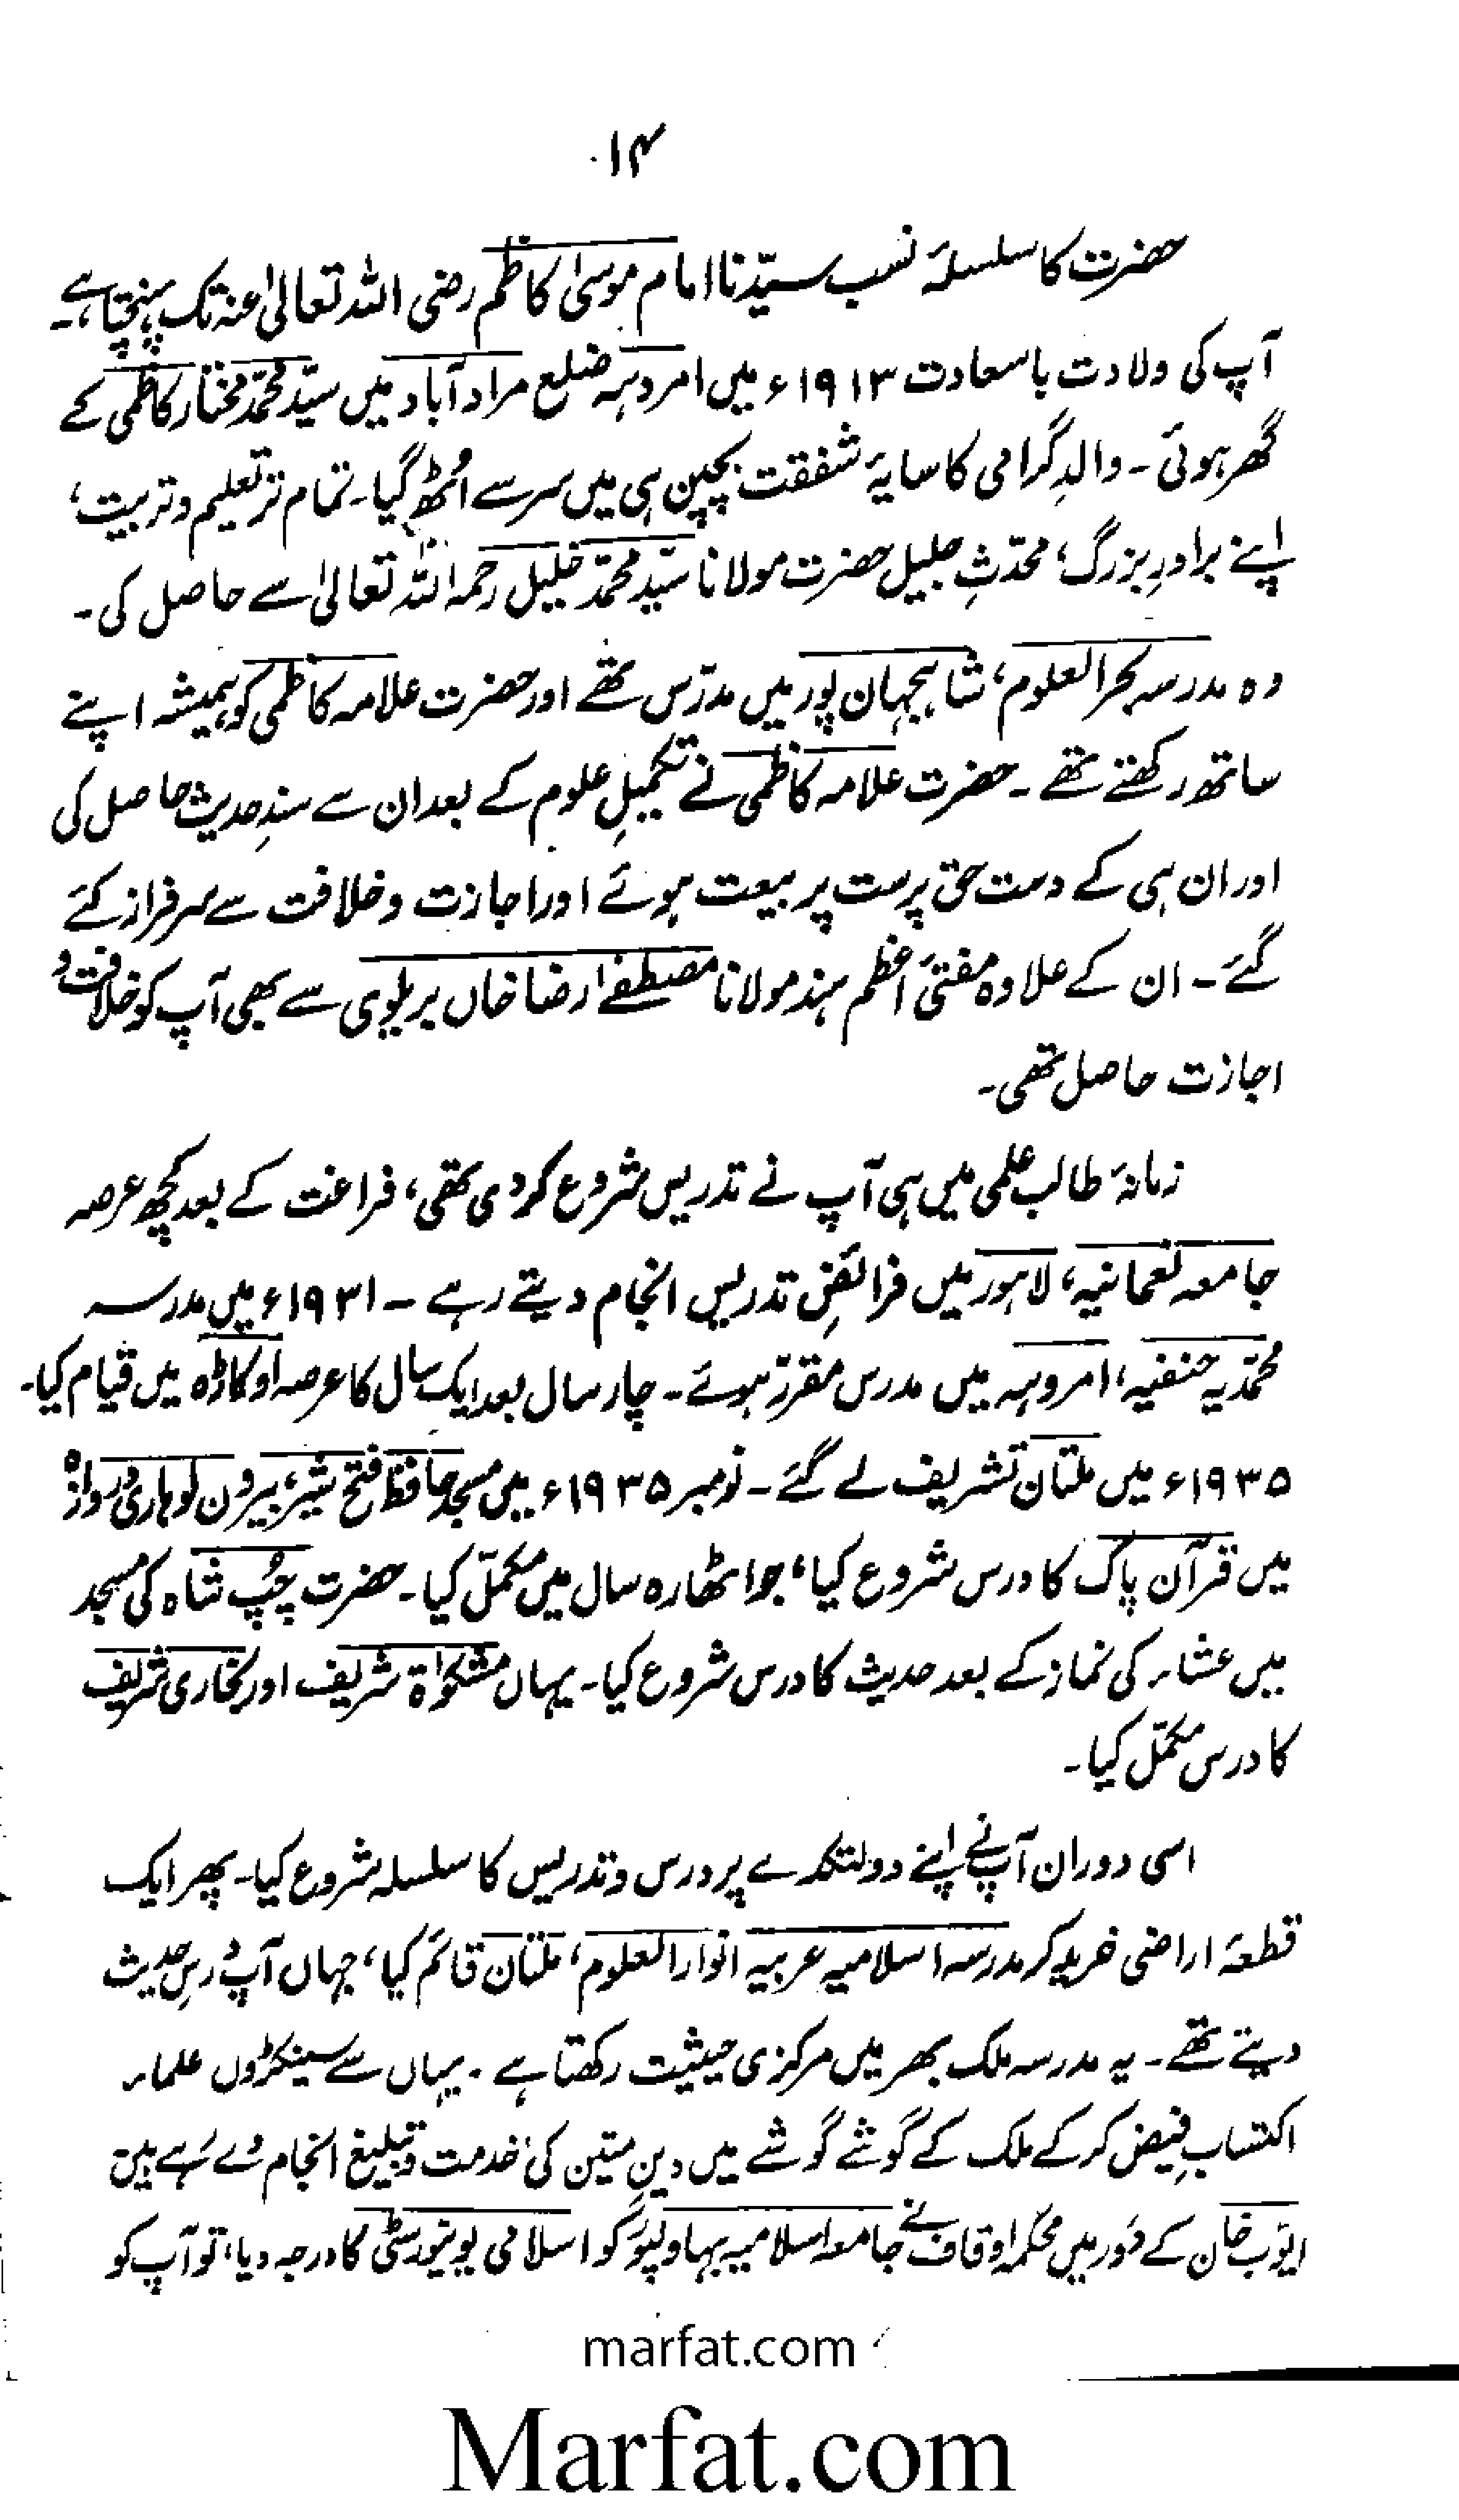 ۱۴
حضرت کا سلسلۂ نسب سیّدنا امام موسیٰ کاظم رضی اللہ تعالیٰ عنہ تک پہنچتا ہے۔
آپ کی ولادتِ باسعادت ۱۹۱۳ء میں امروہہ ضلع مراد آباد میں سیّد محمّد مختار کاظمی کے
گھر ہوئی۔ والدِ گرامی کا سایۂ شفقت بچپن ہی میں سر سے اُٹھ گیا۔ تمام تر تعلیم و تربیت،
اپنے برادرِ بزرگ، محدّثِ جلیل حضرت مولانا سیّد محمّد خلیل رحمہ اللہ تعالیٰ سے حاصل کی۔
وہ مدرسہ بحر العلوم، شاہجہان پور میں مدرّس تھے اور حضرت علامہ کاظمی کو ہمیشہ اپنے
ساتھ رکھتے تھے۔ حضرت علامہ کاظمی نے تکمیلِ علوم کے بعد ان سے سندِ حدیث حاصل کی
اور ان ہی کے دست حق پرست پر بیعت ہوئے اور اجازت و خلافت سے سرفراز کئے
گئے۔ ان کے علاوہ مفتیٔ اعظم ہند مولانا مصطفےٰ رضا خاں بریلوی سے بھی آپ کو خلافت و
اجازت حاصل تھی۔
زمانۂ طالب علمی میں ہی آپ نے تدریس شروع کر دی تھی، فراغت کے بعد کچھ عرصہ
جامعہ نعمانیہ، لاہور میں فرائضِ تدریس انجام دیتے رہے۔ ۱۹۳۱ء میں مدرسہ
محمّدیہ حنفیہ، امروہہ میں مدرس مقرر ہوئے۔ چار سال بعد ایک سال کا عرصہ اوکاڑہ میں قیام کیا۔
۱۹۳۵ء میں ملتان تشریف لے گئے۔ نومبر ۱۹۳۵ء میں مسجد حافظ فتح شیر، بیرون لوہاری دروازہ
میں قرآن پاک کا درس شروع کیا، جو اٹھارہ سال میں مکمّل کیا۔ حضرت چُپ شاہ کی مسجد
میں عشاء کی نماز کے بعد حدیث کا درس شروع کیا۔ یہاں مشکوٰۃ شریف اور بخاری شریف
کا درس مکمّل کیا۔
اسی دوران آپ نے اپنے دولتکدے پر درس و تدریس کا سلسلہ شروع کیا۔ پھر ایک
قطعۂ اراضی خرید کر مدرسہ اسلامیہ عربیہ انوار العلوم، ملتان قائم کیا، جہاں آپ درسِ حدیث
دیتے تھے۔ یہ مدرسہ ملک بھر میں مرکزی حیثیت رکھتا ہے۔ یہاں سے سینکڑوں علماء
اکتسابِ فیض کر کے ملک کے گوشے گوشے میں دینِ متین کی خدمت و تبلیغ انجام دے رہے ہیں
ایّوب خان کے دَور میں محکمہ اوقاف نے جامعہ اسلامیہ بہاولپور کو اسلامی یونیورسٹی کا درجہ دیا، تو آپ کو
marfat.com
Marfat.com